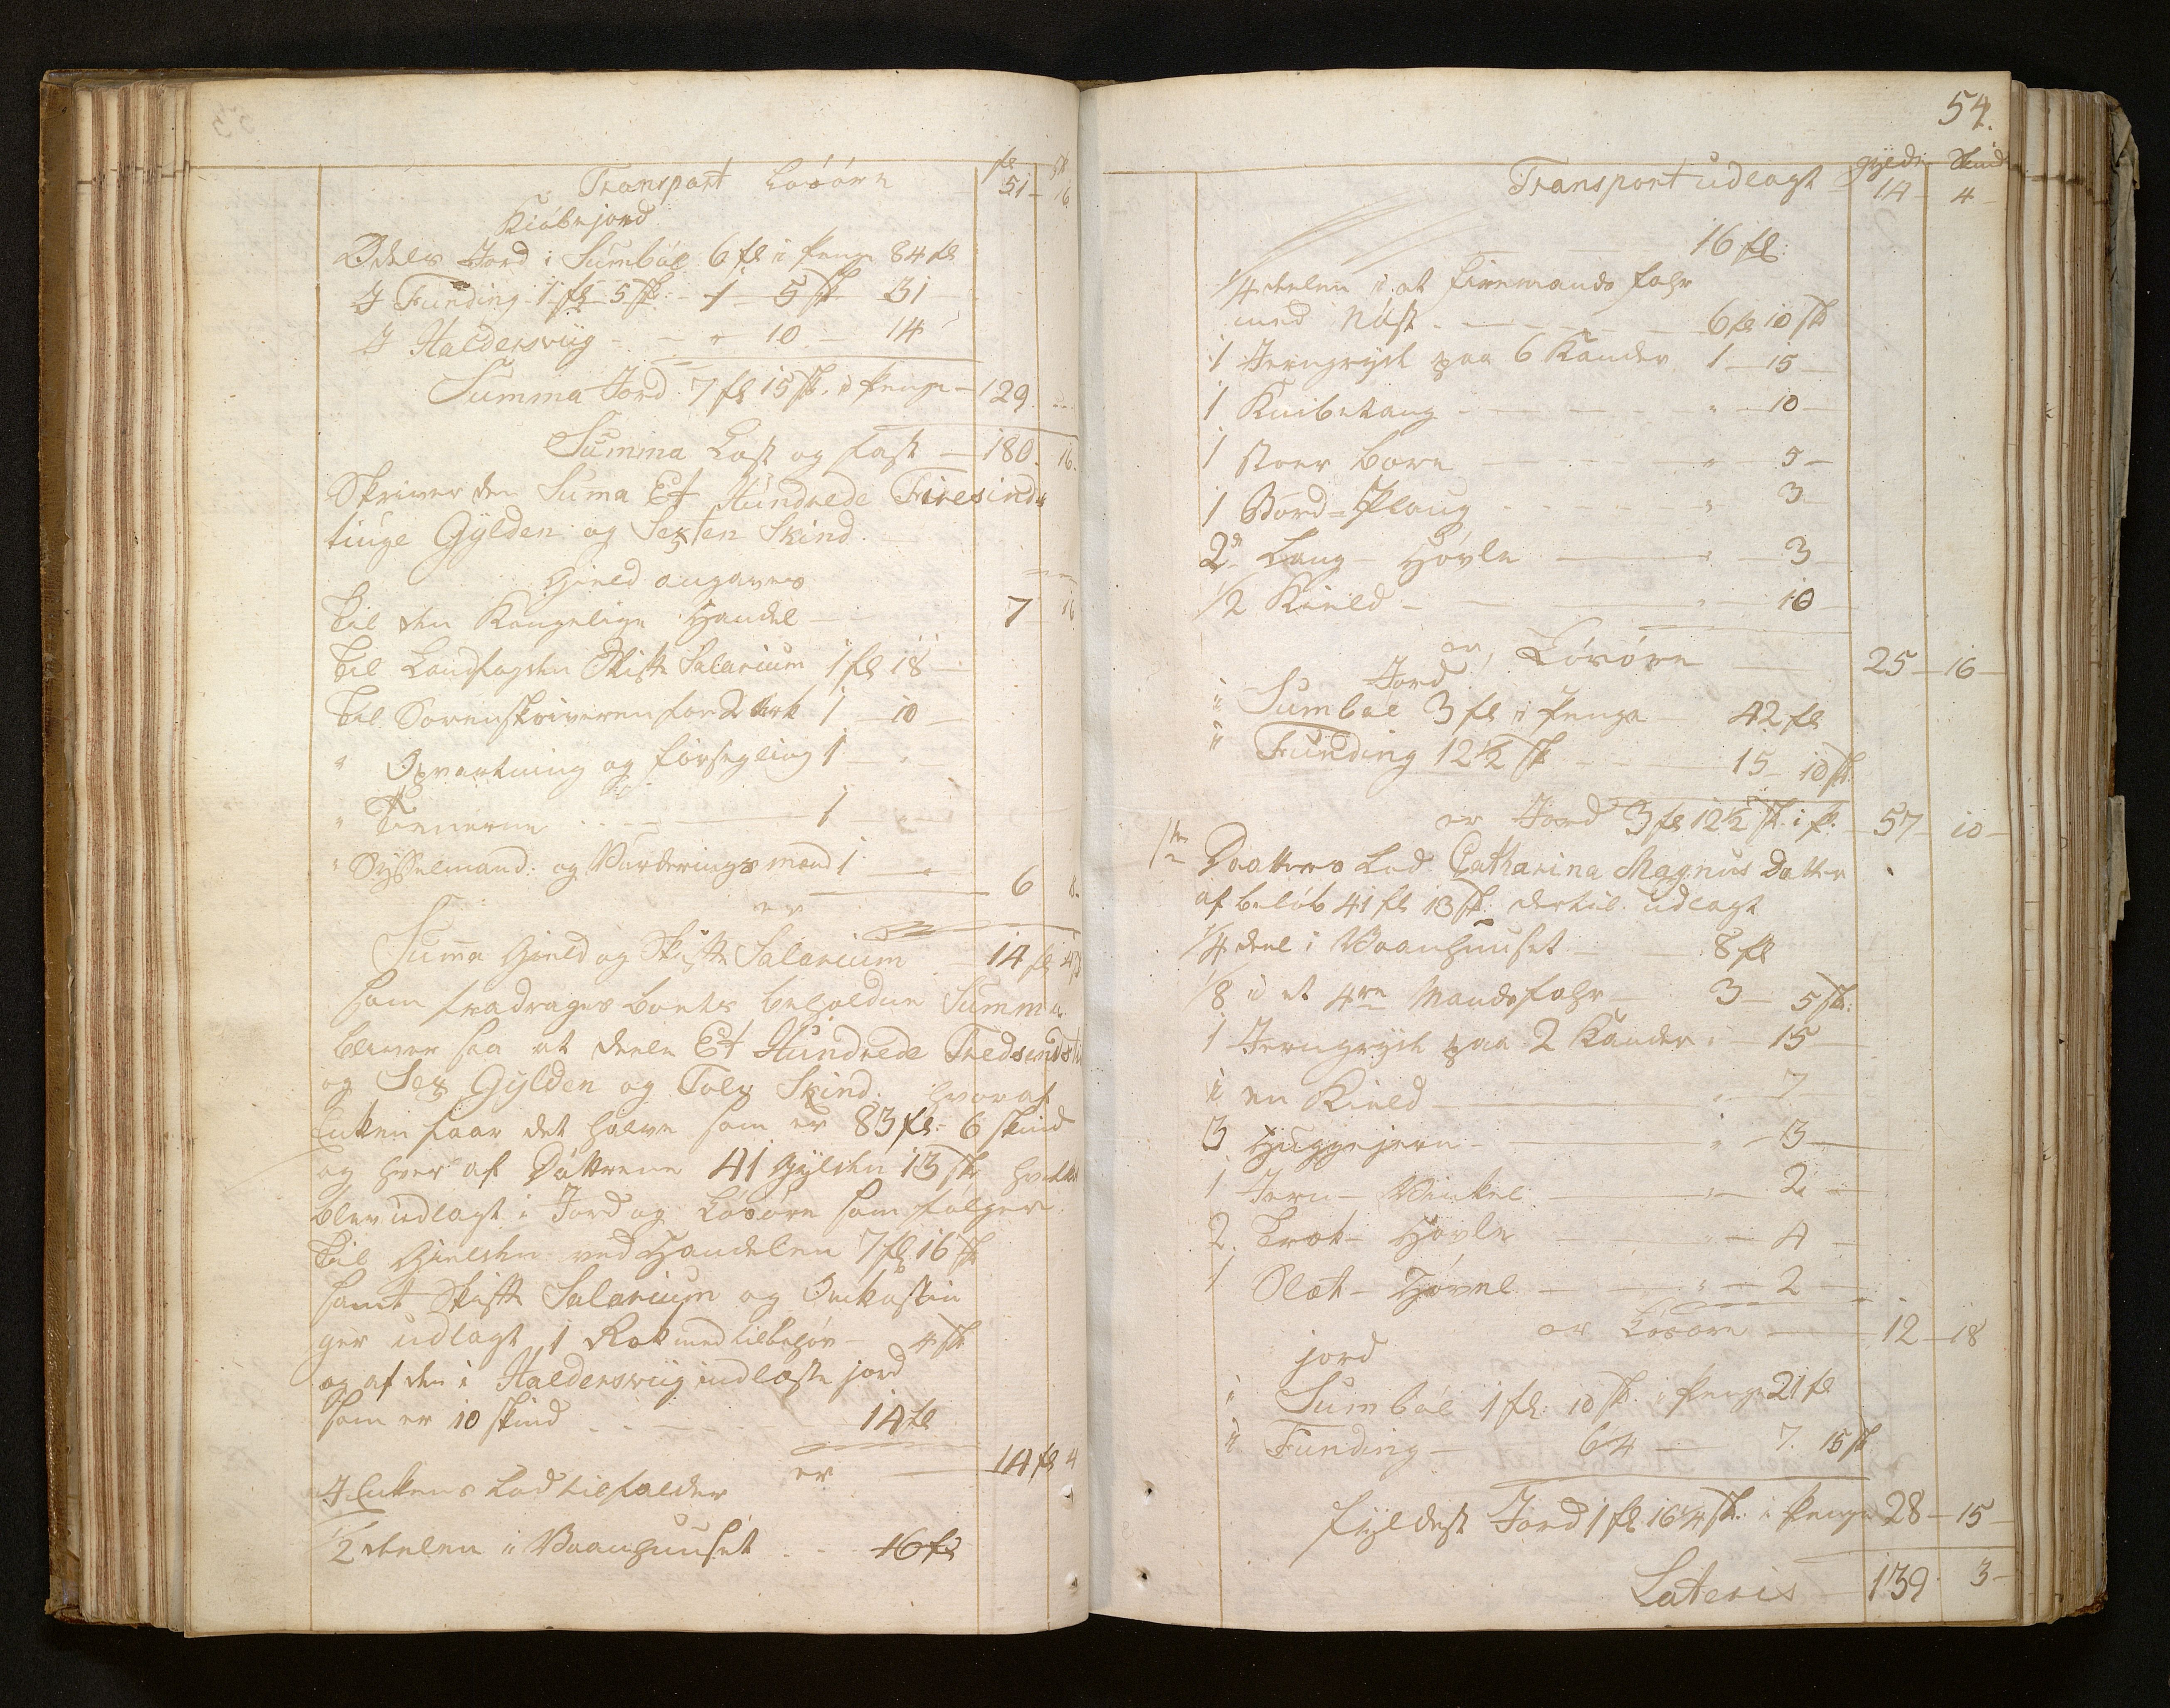 fl sk
Transport Løsøre 51 - 16
Kiøbejord
Odels Jord i Sumbøe 6 fl i Penge 84 fl
I Funding 1 fl 5 sk - 1 5 sk 31
I Haldersviig - - " 10 - 14
Summa Jord 7 fl 15 sk. i Penge - 129
Summa Løst og fast - 180. 16.
Skriver den Suma Et Hundrede Firesinds
tiuge Gylden og Sexten Skind.
Gield angaves
Til den Kongelige Handel - 7 16
Til Landfogden Skifte Salarium 1 fl 18 -
Til Sorenskriveren for 2 Ark 1 - 10 -
" Opvartning og Forsegling 1 - " -
" Tienerne - 1
" Sysselmand: og Vurderings mænd 1 "
er 6 8.
Summa Gield og Skifte Salarium - 14 fl 4 sk
som fradrages boets beholdne Summa
bliver saa at deele Et Hundrede Tredsindsti
og Sex Gylden og Tolv Skind. hvoraf
Enken faar det halve som er 83 fl. 6 skind
og hver af Døttrene 41 Gylden 13 sk hvilket
blev udlagt i Jord og Løsøre som følger
Til Gielden ved Handelen 7 fl 16 sk
samt Skifte Salarium og Omkostnin
ger udlagt 1 Rok med tilbehør - 4 sk
og af den i Haldersviig indløste jord
som er 10 skind - 14 fl
er - 14 fl 4
I Enkens Lod tilfalder
1/2 deelen i Vaanhuuset - 16 fl
54.
Transport udlagt Gylden Skind
14 - 4 -
16 fl:
1/4 deelen i et Firemands fahr
med Nøst - 6 fl 10 sk
1 Jerngryde paa 6 Kander 1 - 15 -
1 Knibetang - " - 10 -
1 stoer Bore - " - 5 -
1 Bord-Plaug - " 3 -
2de Lang-Høvle - " 3 -
1/2 Kield - " - 10 -
er, Løsøre - 25 - 16 -
Jord
i Sumbøe 3 fl i Penge - 42 fl
i Funding 12 1/2 sk - 15 - 10 sk.
er Jord 3 fl 12 1/2 sk. i P. - 57 - 10 -
Daatters Lod Catharina Magnus Datter
af beløb 41 fl 13 sk. dertil udlagt
1/4 deel i Vaanhuuset - 8 fl
1/8 i et 4re Mandsfahr - 3 - 5 sk.
1 Jerngryde paa 2 Kander " - 15 -
i en Kield - " - 7 -
3 Huggejern - " - 3 -
1 Jern-Vinkel - " - 2 -
2. - Høvle - " - 4 -
1 Slet-Høvel - " - 2 -
er Løsøre - 12 - 18
jord
i Sumbøe 1 fl: 10 sk. i Penge 21 fl
i Funding - 6 1/4 - 7. 15 sk
fyldest Jord 1 fl 16 1/4 sk: i Penge 28 - 15 -
Lateris - 139 3 -